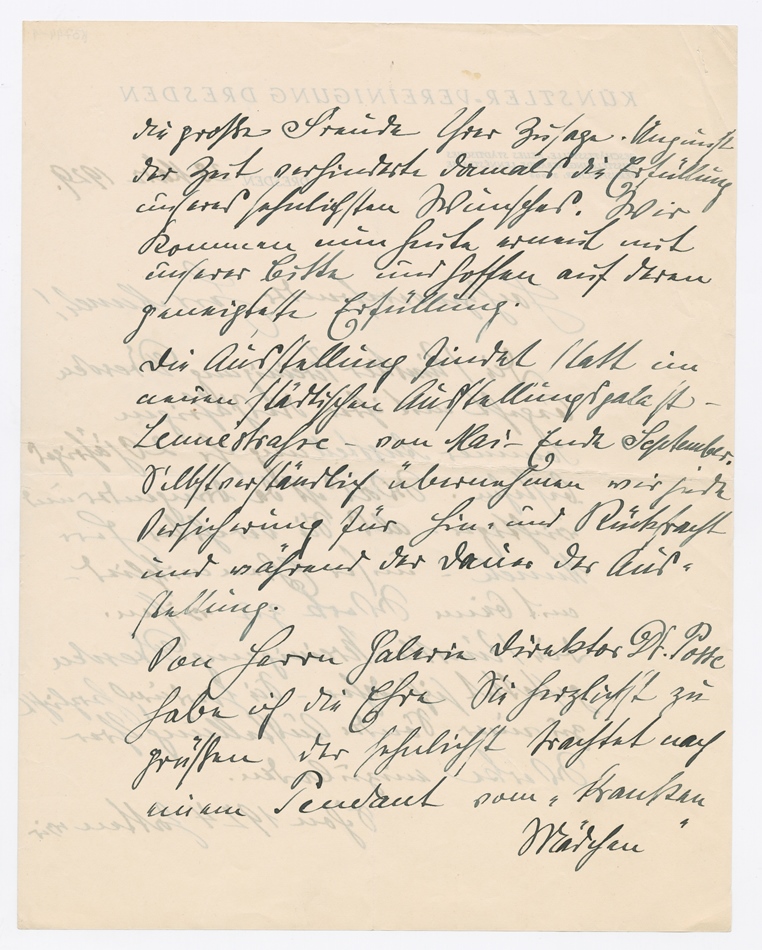 die große Freude Ihrer Zusage. Ungunst
der Zeit verhinderte damals die Erfüllung
unseres sehnlichsten Wunsches. Wir
kommen nun heute erneut mit
unserer Bitte und hoffen auf deren
geneigteste Erfüllung.
Die Ausstellung findet statt im
neuen städtischen Ausstellungspalast –
Lennéstrasse – von Mai – Ende September.
Selbstverständlich übernehmen wir jede
Versicherung für Hin- und Rückfracht
und während der Dauer der Aus-
stellung.
Von Herrn Galerie Direktor Dr. Posse
habe ich die Ehre Sie herzlichst zu
grüßen der sehnlichst trachtet nach
einem Pendant vom „Kranken
Mädchen"
KÜNSTLER-VEREINIGUNG DRESDEN
1929.